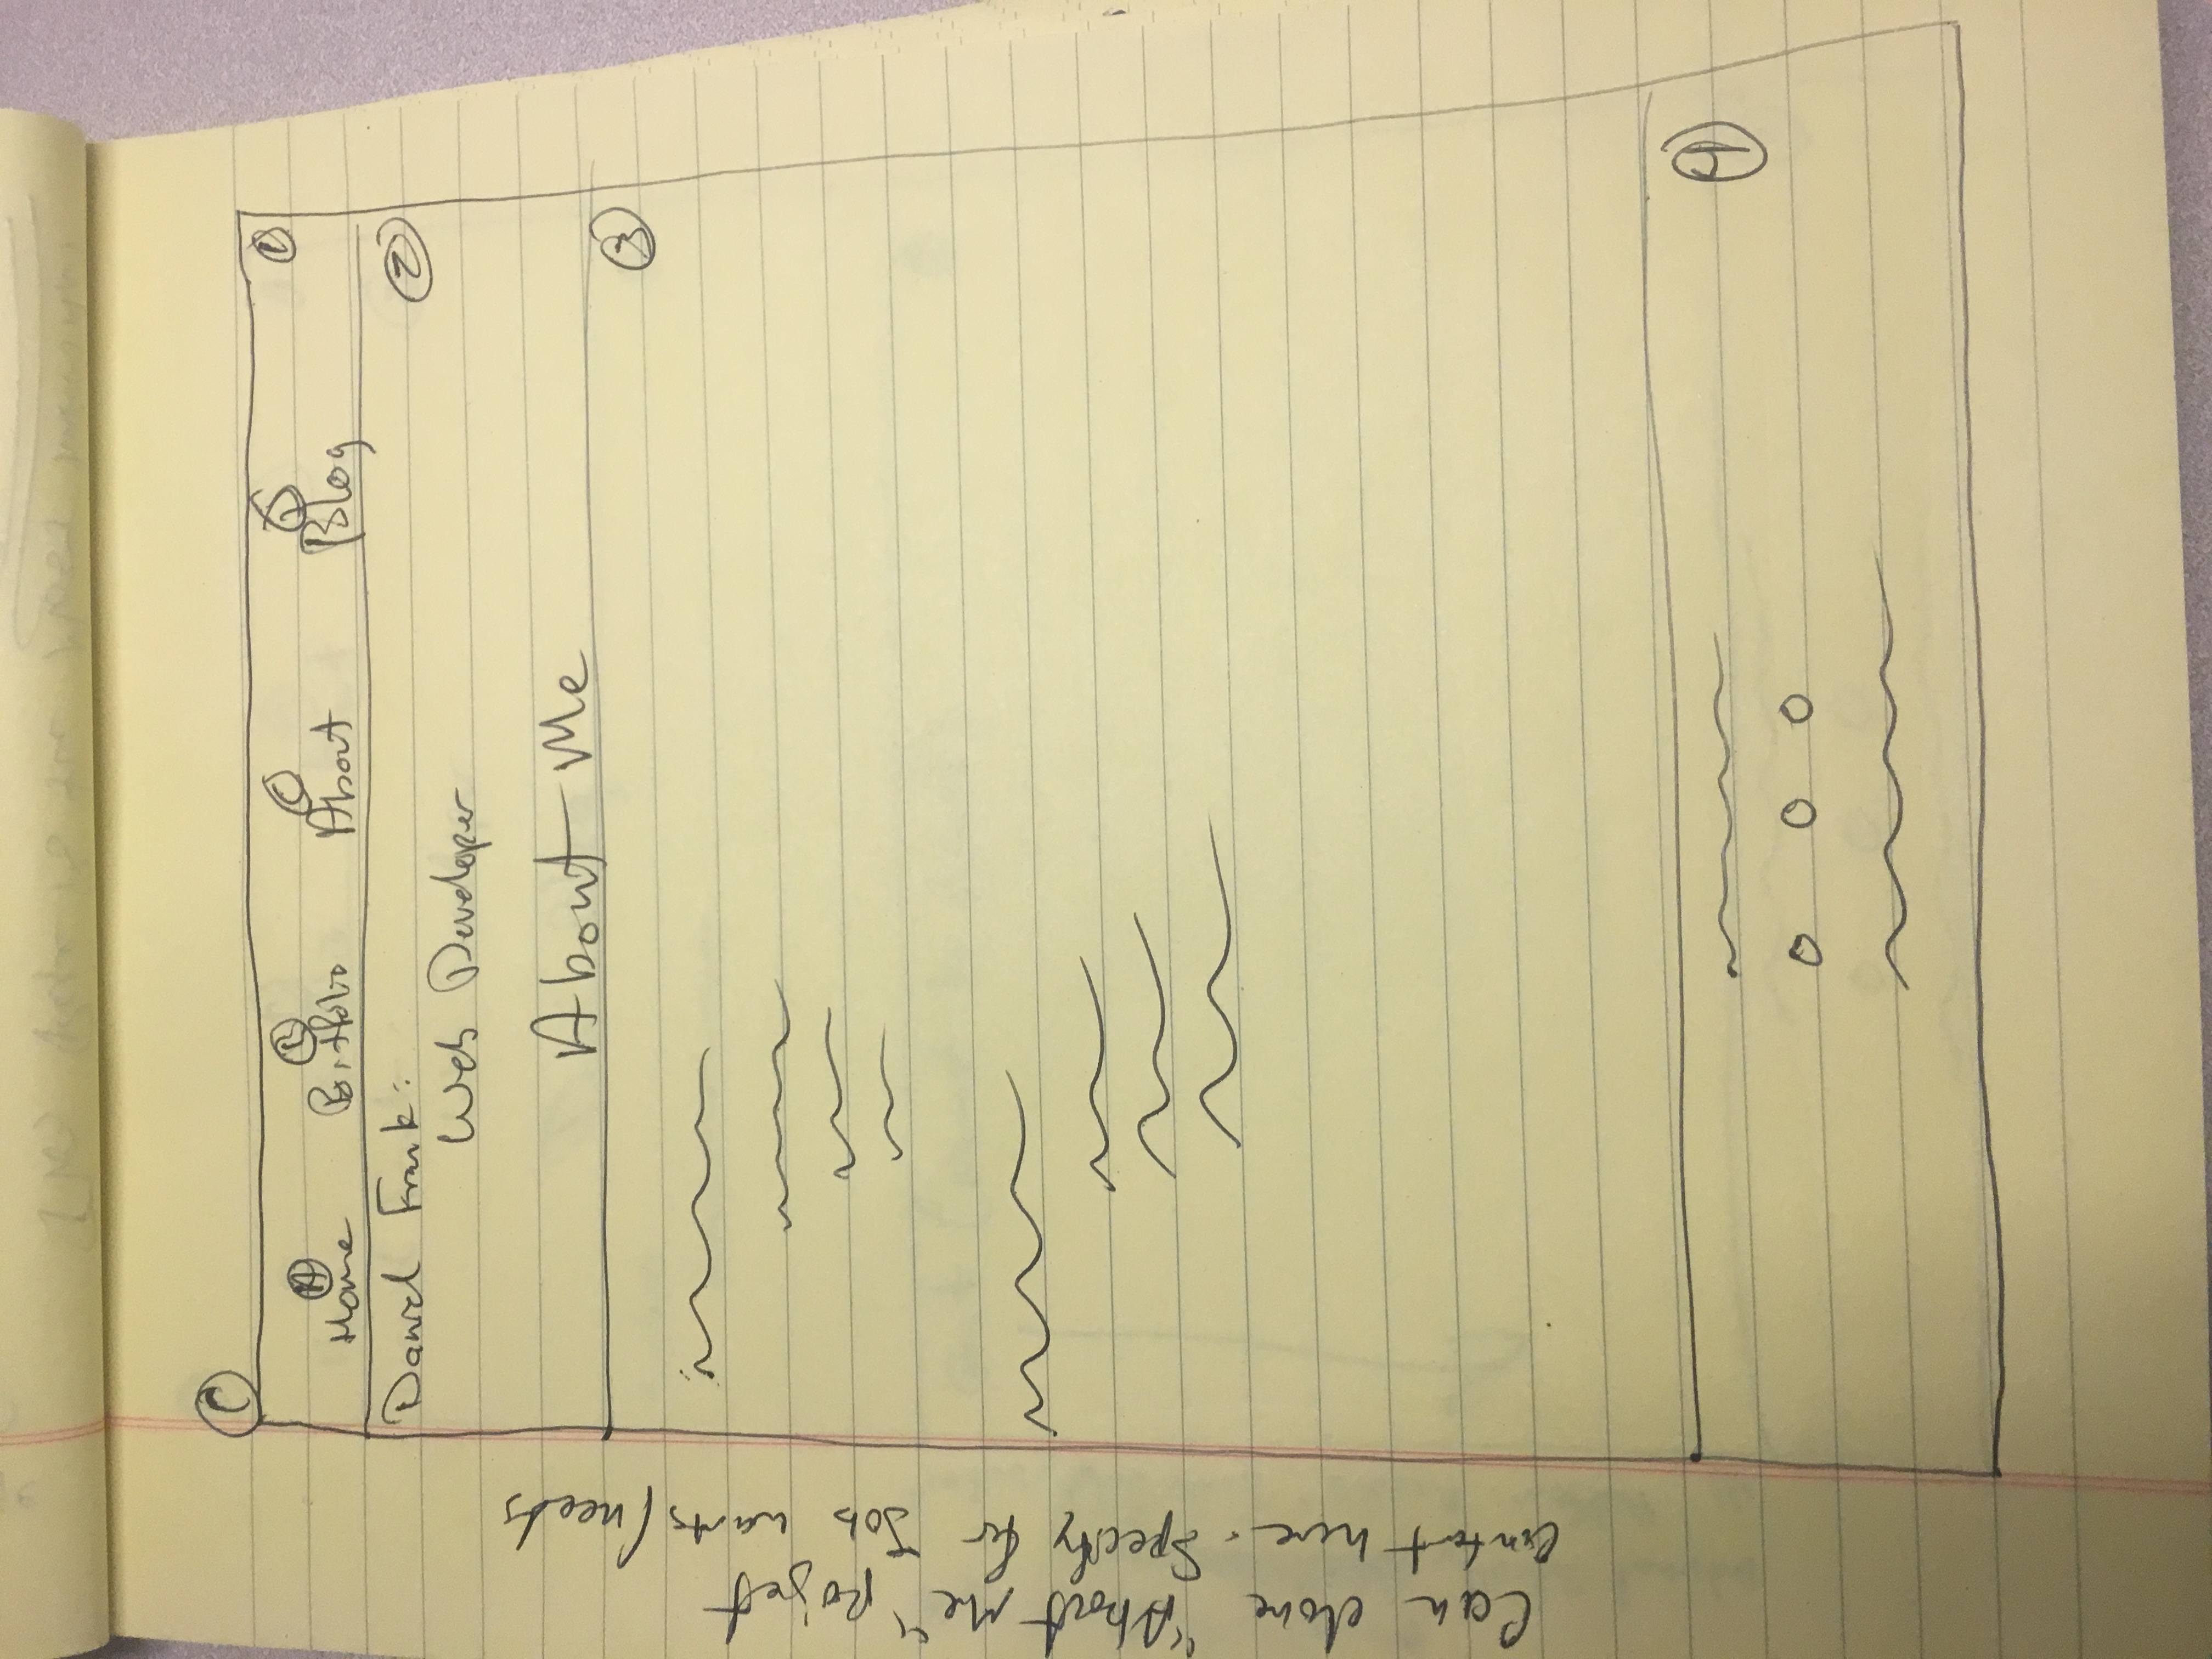 C
A B C D 1
Home Portfolio About Blog
Daniel Frank: 2
Web Developer
About Me
3
4
Can clone "About Me" Project
content here. Specify for Job wants/needs